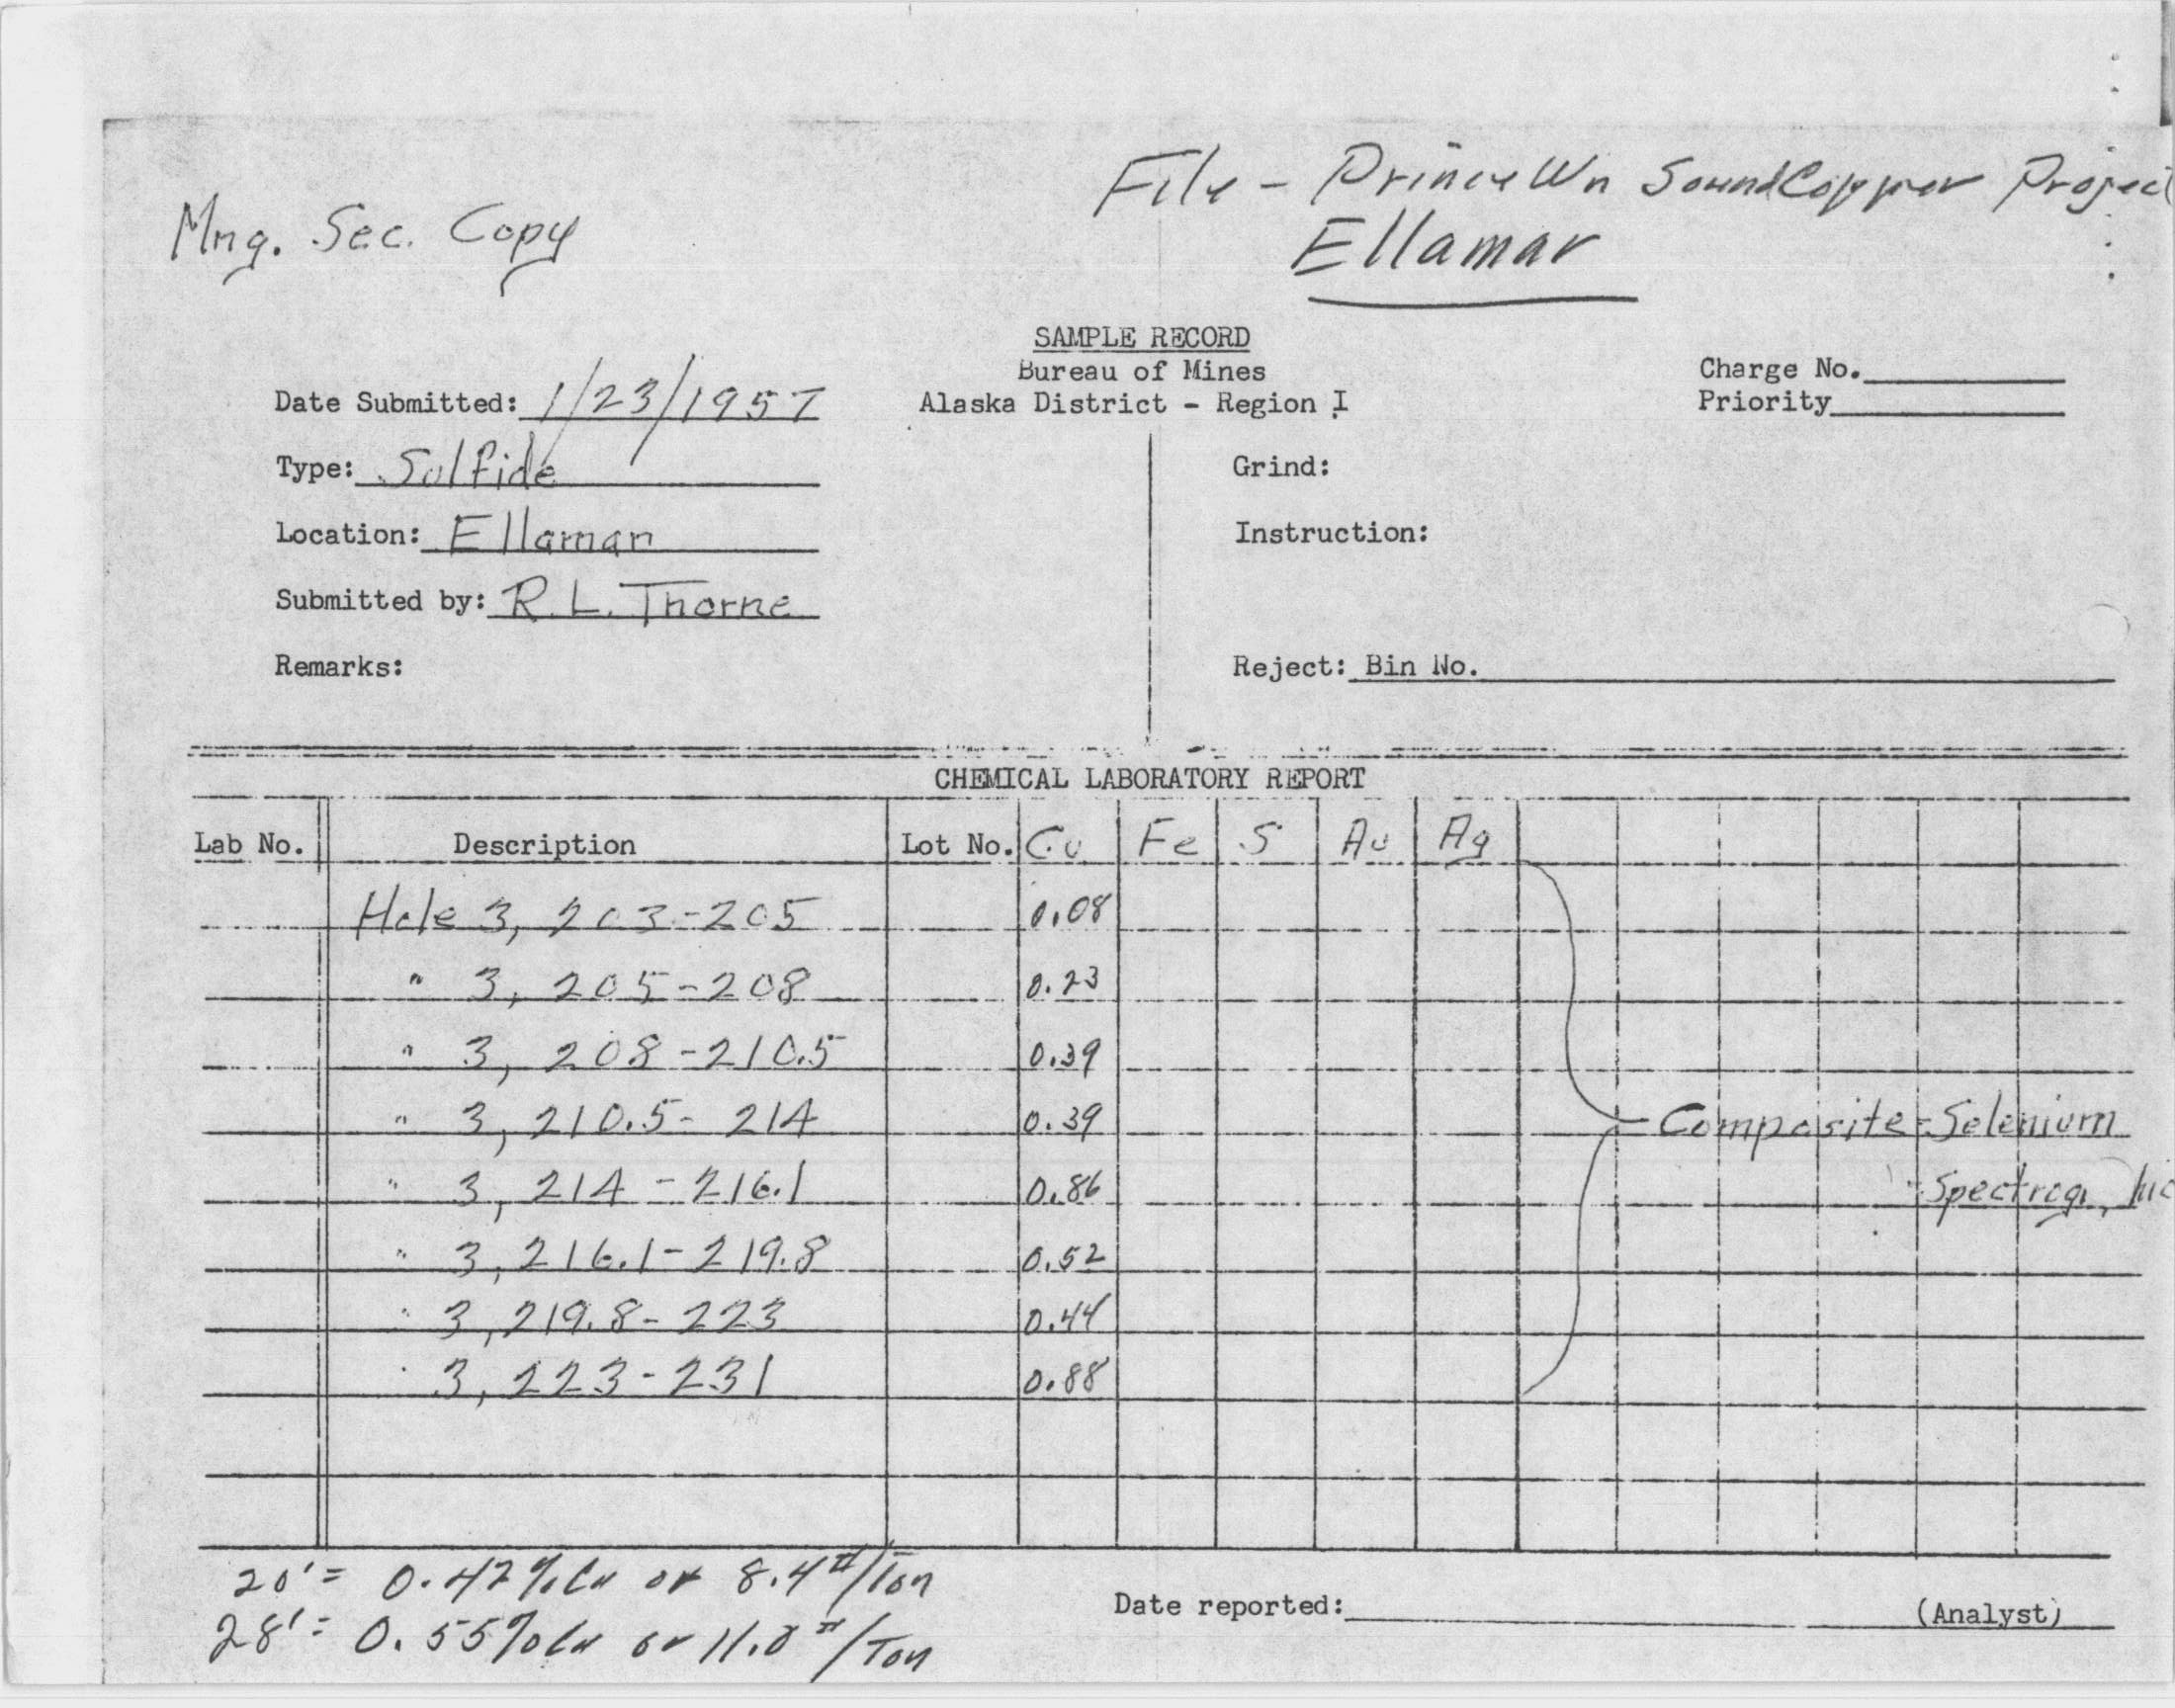 File - Prince Wn Sound Copper Project
Mng. Sec. Copy
Ellamar
SAMPLE RECORD
Bureau of Mines
Alaska District - Region I
Charge No.
Priority
Date Submitted: 1/23/1957
Type: Sulfide
Location: Ellamar
Submitted by: R.L. Thorne
Remarks:
Grind:
Instruction:
Reject: Bin No.
CHEMICAL LABORATORY REPORT
Lab No. Description Lot No. Cu Fe S Au Ag
Hole 3, 203-205 0.08
" 3, 205-208 0.23
" 3, 208-210.5 0.39
" 3, 210.5-214 0.39
Composite - Selenium
" 3, 214-216.1 0.86
" 3, 216.1-219.8 0.52
" 3, 219.8-223 0.44
" 3, 223-231 0.88
20' = 0.42% Cu or 8.4#/Ton
28' = 0.55% Cu or 11.0#/Ton
Date reported: (Analyst)